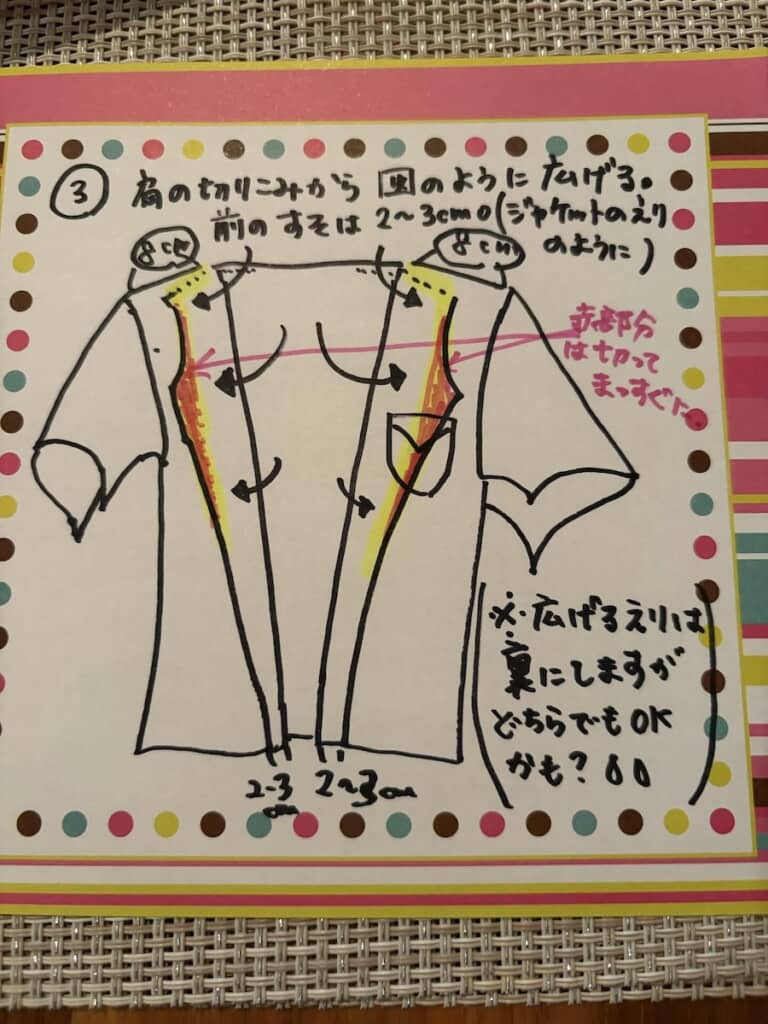 ③ 肩の切りこみから図のように広げる。
前のすそは2〜3cm。(ジャケットのえり
のように)
8cm
8cm
赤部分
は切って
まっすぐに。
※広げるえりは
裏にしますが
どちらでもOK
かも?
2-3
cm
2〜3cm